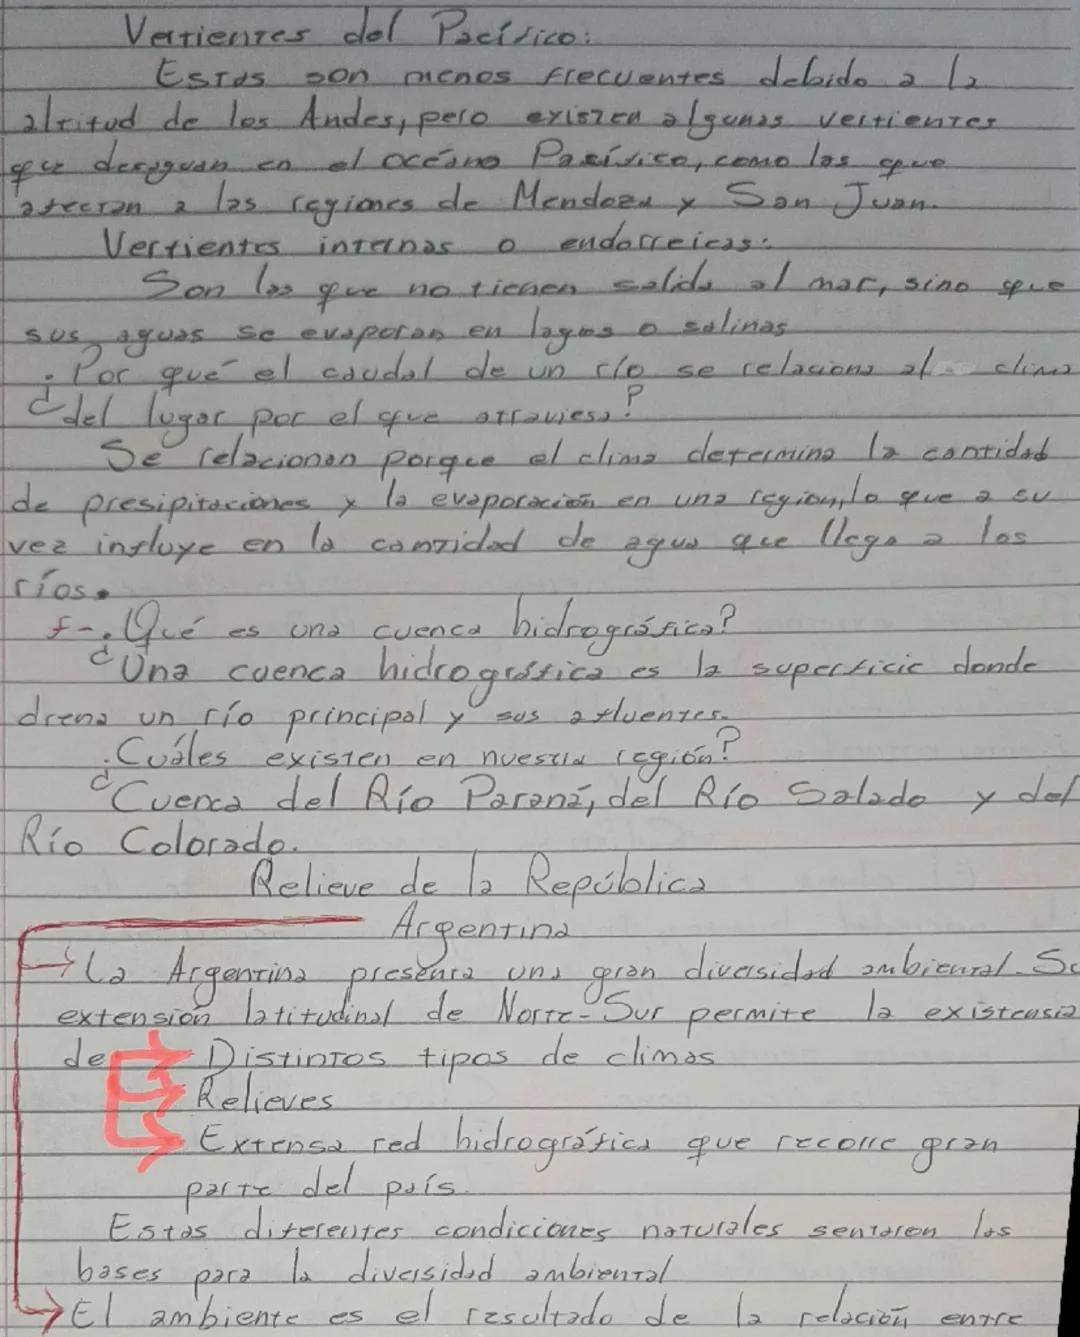 Vertientes del Pacífico:
Estas son menos frecuentes debido a la
altitud de los Andes, pero existen algunas vertientes
que desaguan en el océano Pacífico, como las que
afectan a las regiones de Mendoza y San Juan.
Vertientes internas o endorreicas:
Son las que no tienen salida al mar, sino que
sus aguas se evaporan en lagos o salinas
¿Por qué el caudal de un río se relaciona al clima
del lugar por el que atraviesa?
Se relacionan porque el clima determina la cantidad
de presipitaciones y la evaporación en una region, lo que a su
vez influye en la cantidad de agua que llega a los
ríos.
f-¿Qué es una cuenca hidrográfica?
Una cuenca hidrográfica es la superficie donde
drena un río principal y sus afluentes.
¿Cuáles existen en nuestra región?
Cuenca del Río Paraná, del Río Salado y del
Río Colorado.
Relieve de la República
Argentina
→ La Argentina presenta una gran diversidad ambiental. Su
extensión latitudinal de Norte-Sur permite la existensia
de → Distintos tipos de climas
→ Relieves
→ Extensa red hidrográfica que recorre gran
parte del país.
Estas diferentes condiciones naturales sentaron las
bases para la diversidad ambiental
→ El ambiente es el resultado de la relación entre